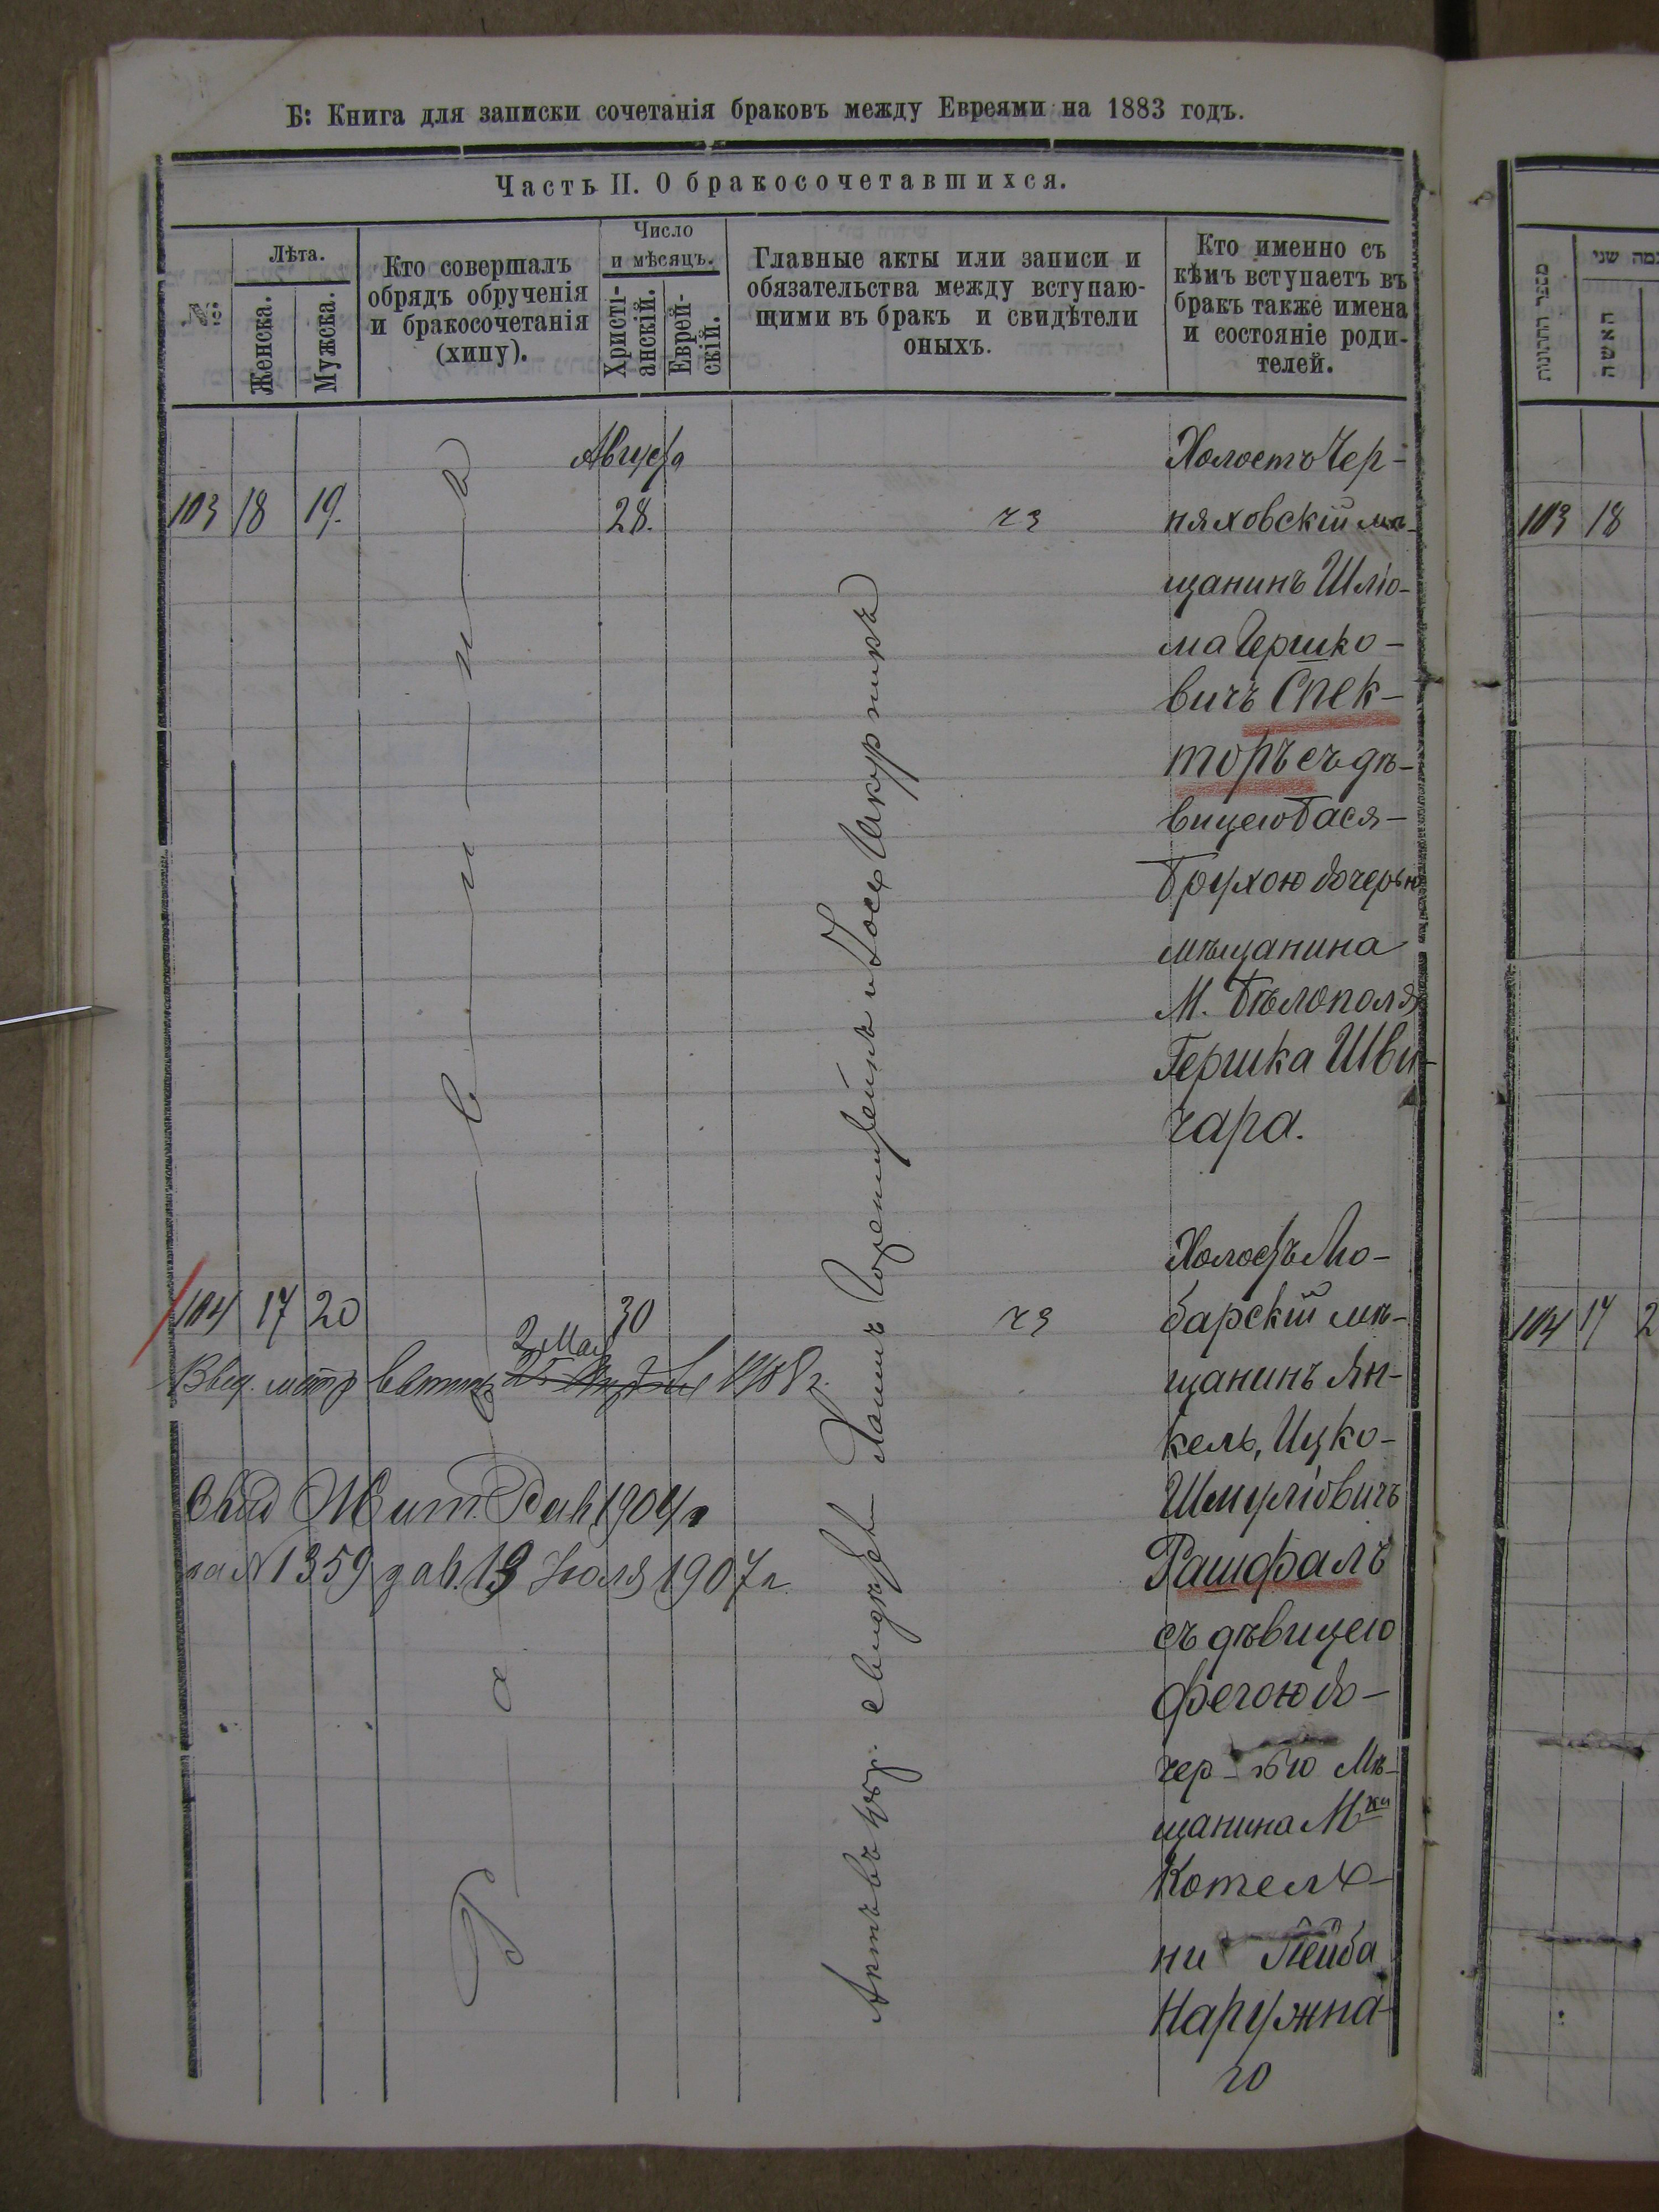 Б: Книга для записки сочетанія браковъ между Евреями на 1883 годъ.
Часть II. О бракосочетавшихся.
№№
Лѣта.
Женска.
Мужска.
Кто совершалъ
обрядъ обрученія
и бракосочетанія
(хипу).
Число
и мѣсяцъ.
Христі-
анскій.
Еврей-
скій.
Главные акты или записи и
обязательства между вступаю-
щими въ бракъ и свидѣтели
оныхъ.
Кто именно съ
кѣмъ вступаетъ въ
бракъ также имена
и состояніе роди-
телей.
Августа
103 18 19. 28. 73
Холостъ Чер-
няховскій мѣ-
щанинъ Шліо-
ма Гершко-
вичъ Спек-
торъ съ дѣ-
вицею Бася-
Брухою дочерью
мѣщанина
М. Бѣлополя
Гершка Шви-
чара.
104 17 20 30 73
Холостъ Лю-
барскій мѣ-
щанинъ Ян-
кель, Ицко-
Шмуліовичъ
Рашфалъ
съ дѣвицею
Фегою до-
чер-ью Мѣ-
щанина М-ки
Котел-
ни Лейба
Наружна-
го
2 Мая
25 1908 г.
Свид Жит. Рав 1904 г
за N 1359 дав. 13 Іюля 1907 г.
Раввинъ
свидѣт.
מספר החתונות
כמה שני
האשה
103 18
104 17 2